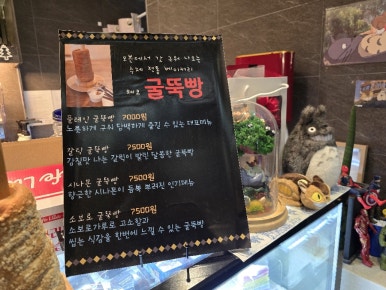 오븐에서 갓 구워 나오는
수제 전통 베이커리
체코 굴뚝빵
플레인 굴뚝빵 7000원
노릇하게 구워 담백하게 즐길 수 있는 대표메뉴
갈릭 굴뚝빵 7500원
감칠맛 나는 갈릭이 발린 달콤한 굴뚝빵
시나몬 굴뚝빵 7500원
향긋한 시나몬이 듬뿍 뿌려진 인기메뉴
소보로 굴뚝빵 7500원
소보로가루로 고소함과
씹는 식감을 한번에 느낄 수 있는 굴뚝빵